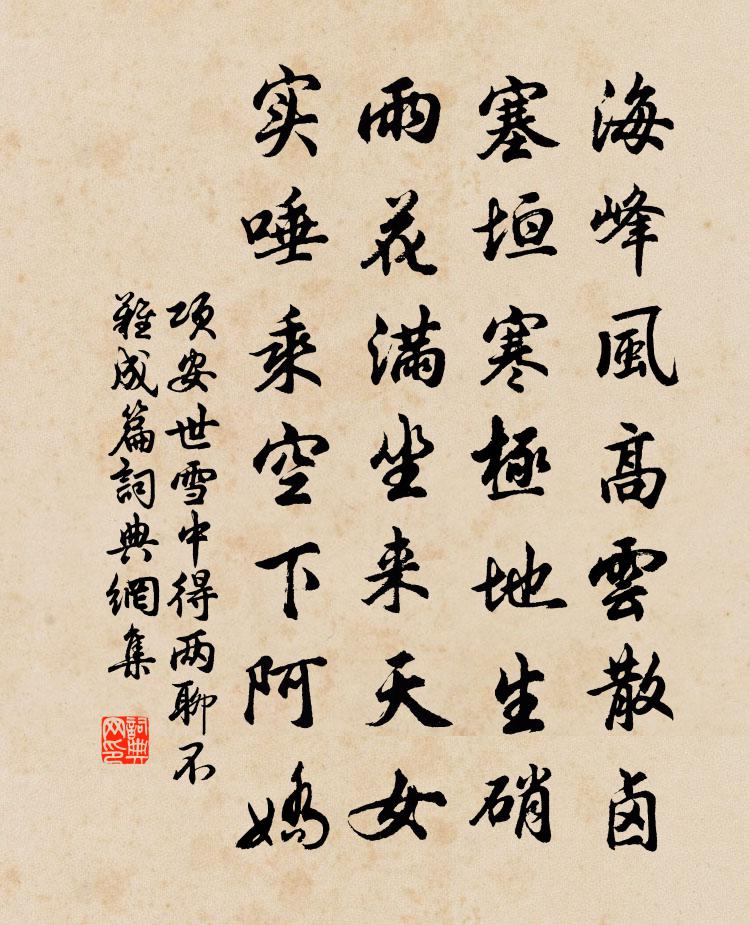 海峰風高雲散鹵
塞垣寒極地生硝
雨花滿坐来天女
实唾乘空下阿嬌
项安世雪中得两聊不
雖成篇詞典網集
詞典网印